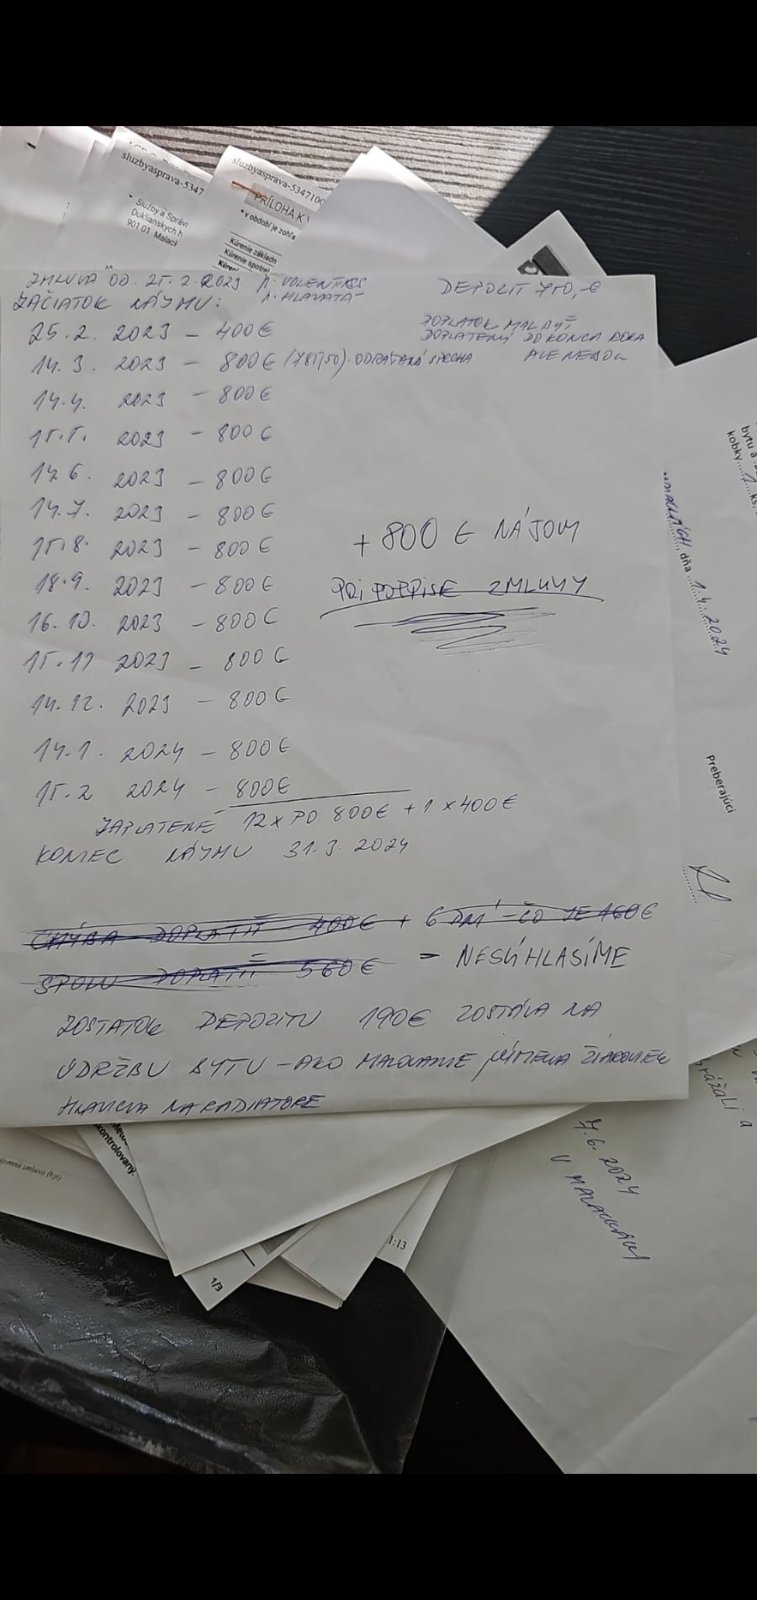 sluzbyasprava-5347
Služby a Správ
Duklianskych h
901 01 Malack
sluzbyasprava-5347100
PRÍLOHA K V
• v období je zohľa
Kúrenie základn
Kúrenie spotre
Kúreni
ZMLUVA OD. 25. 2. 2023 p.
DEPOZIT 750,-€
ZAČIATOK NÁJMU: p. HLAVATÁ
25. 2. 2023 – 400€
DOPLATOK MAL BYŤ
DOPLATENÝ DO KONCA ROKA
ALE NEBOL
14. 3. 2023 – 800€ (787,50) ODRÁTANÁ
14. 4. 2023 – 800€
15. 5. 2023 – 800€
14. 6. 2023 – 800€
14. 7. 2023 – 800€
15. 8. 2023 – 800€
18. 9. 2023 – 800€
16. 10. 2023 – 800€
15. 11 2023 – 800€
14. 12. 2023 – 800€
14. 1. 2024 – 800€
15. 2 2024 – 800€
+ 800 € NÁJOM
PRI PODPISE ZMLUVY
ZAPLATENÉ 12x PO 800€ + 1 x 400€
KONIEC NÁJMU 31. 3. 2024
CHÝBA DOPLATIŤ 400€ + 6 DNÍ – ČO JE 160€
SPOLU DOPLATIŤ 560€ – NESÚHLASÍME
ZOSTATOK DEPOZITU 190€ ZOSTÁVA NA
ÚDRŽBU BYTU – AKO MAĽOVANIE VÝMENA ŽIAROVIEK
HLAVICA NA RADIATORE
bytu a
kobky 1 ks
dňa 1. 4. 2024
Preberajúci
kontrolovaný.
1/3
1:13
7. 6. 2024
V MALACKÁCH